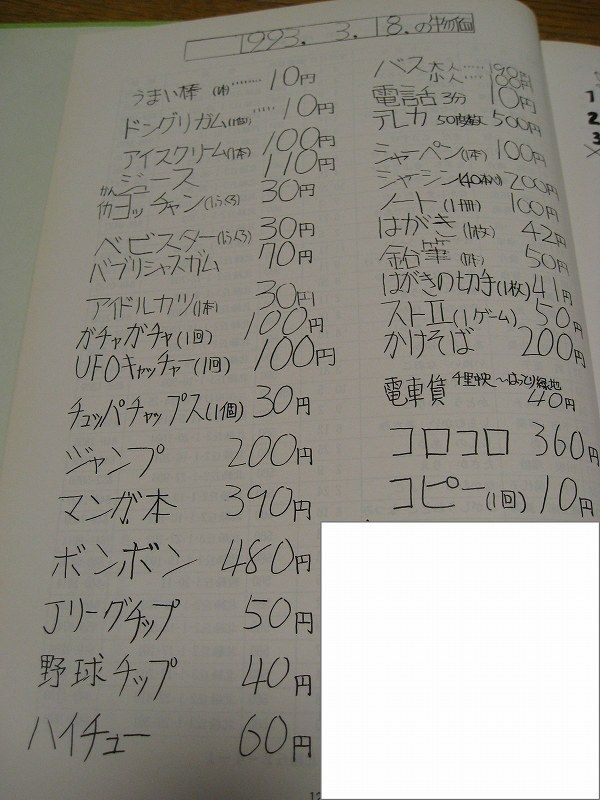 1993. 3. 18. の物価
うまい棒 (1本)‥‥‥‥ 10円
ドングリガム(1個)‥‥‥ 10円
アイスクリーム(1本) 100円
かんジュース 110円
イカゴッチャン(1ふくろ) 30円
ベビスター(1ふくろ) 30円
バブリシャスガム 70円
アイドルカツ(1本) 30円
ガチャガチャ(1回) 100円
UFOキャッチャー(1回) 100円
チュッパチャップス(1個) 30円
ジャンプ 200円
マンガ本 390円
ボンボン 480円
Jリーグチップ 50円
野球チップ 40円
ハイチュー 60円
バス大人‥‥‥190円
小人‥‥‥100円
電話3分 10円
テレカ 50度数 500円
シャーペン(1本) 100円
シャーシン(40本入) 200円
ノート(1冊) 100円
はがき(1枚) 42円
鉛筆(1本) 50円
はがきの切手(1枚) 41円
ストⅡ(1ゲーム) 50円
かけそば 200円
電車賃 40円
コロコロ 360円
コピー(1回) 10円
1
2
3